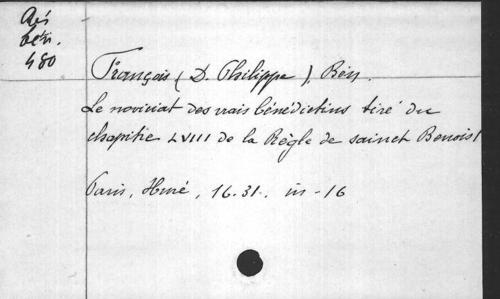 Rés
bén.
480
François (D. Philippe), Bén.
Le noviciat des vrais bénédictins tiré du
chapitre LVIII de la Règle de sainct Benoist
Paris, Huré, 1631. in-16